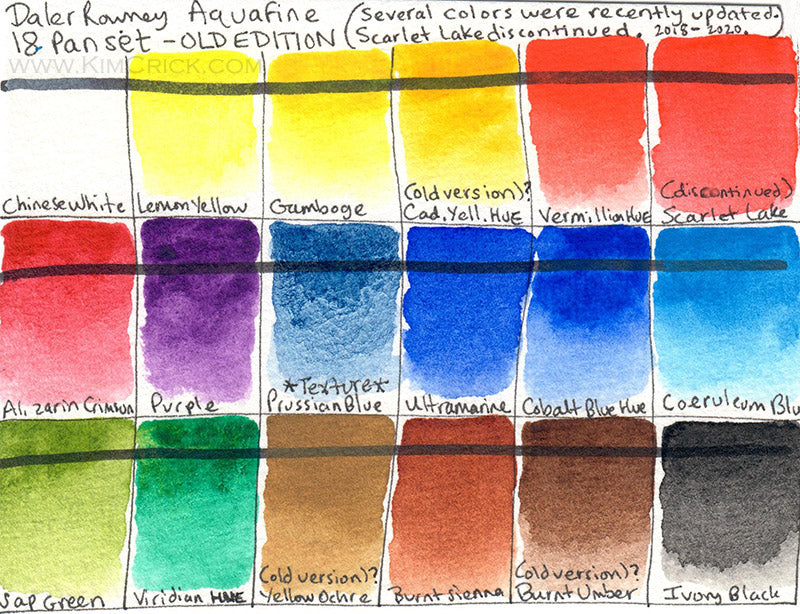 Daler Rowney Aquafine (Several colors were recently updated.
18 pan set - OLD EDITION (Scarlet Lake discontinued. 2018-2020.)
www.KimCrick.com
Chinese White
Lemon Yellow
Gamboge
(old version)?
Cad. Yell. HUE
Vermillion HUE
(discontinued)
Scarlet Lake
Alizarin Crimson
Purple
*Texture*
Prussian Blue
Ultramarine
Cobalt Blue Hue
Coeruleum Blu
Sap Green
Viridian HUE
(old version)?
Yellow Ochre
Burnt Sienna
(old version)?
Burnt Umber
Ivory Black